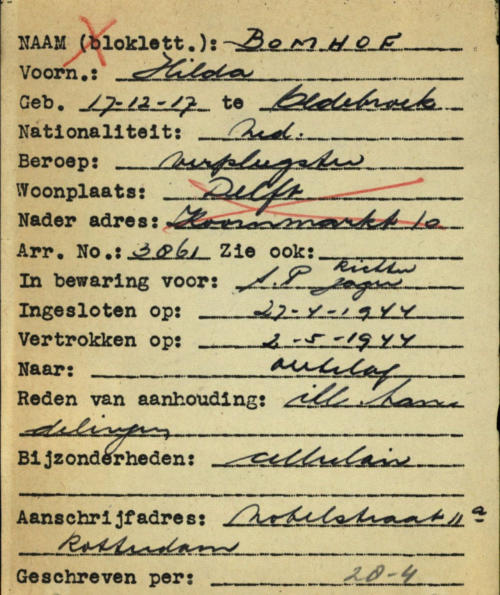 NAAM (bloklett.): BOMHOF
Voorn.: Hilda
Geb. 17-12-17 te Oldebroek
Nationaliteit: Ned.
Beroep: verpleegster
Woonplaats: Delft
Nader adres: Koornmarkt 10
Arr. No.: 3861 Zie ook:
In bewaring voor: S.P. Richter Jager
Ingesloten op: 27-4-1944
Vertrokken op: 2-5-1944
Naar: ontslag
Reden van aanhouding: ill. han
delingen
Bijzonderheden: cellulair
Aanschrijfadres: Nobelstraat 11a
Rotterdam
Geschreven per: 28-4